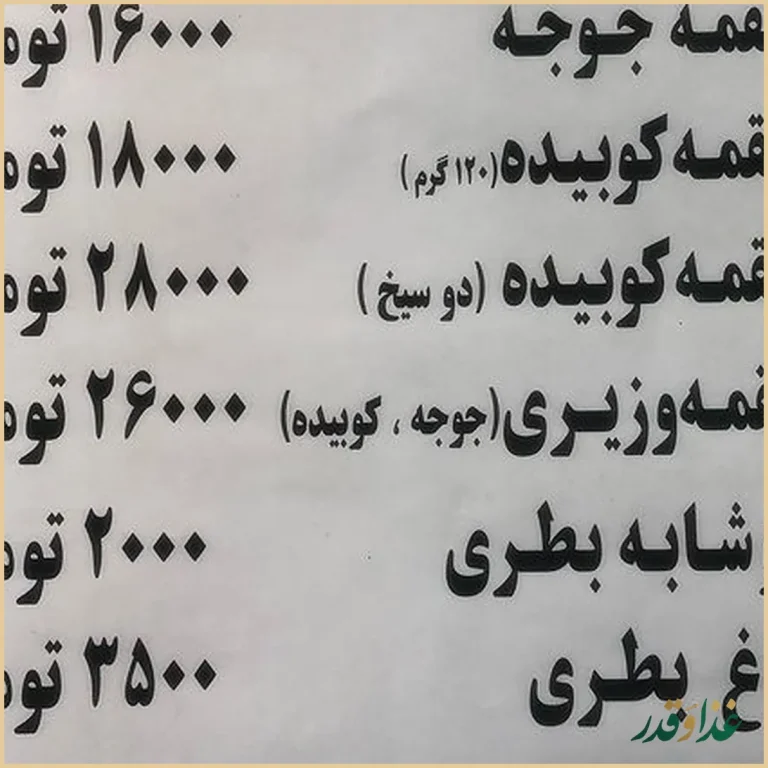 قمه جوجه ۱۶۰۰۰ توم
قمه کوبیده (۱۲۰ گرم) ۱۸۰۰۰ توم
قمه کوبیده (دو سیخ) ۲۸۰۰۰ توم
قمه وزیری (جوجه ، کوبیده) ۲۶۰۰۰ توم
شابه بطری ۲۰۰۰ توم
غ بطری ۳۵۰۰ توم
غذا و قدر